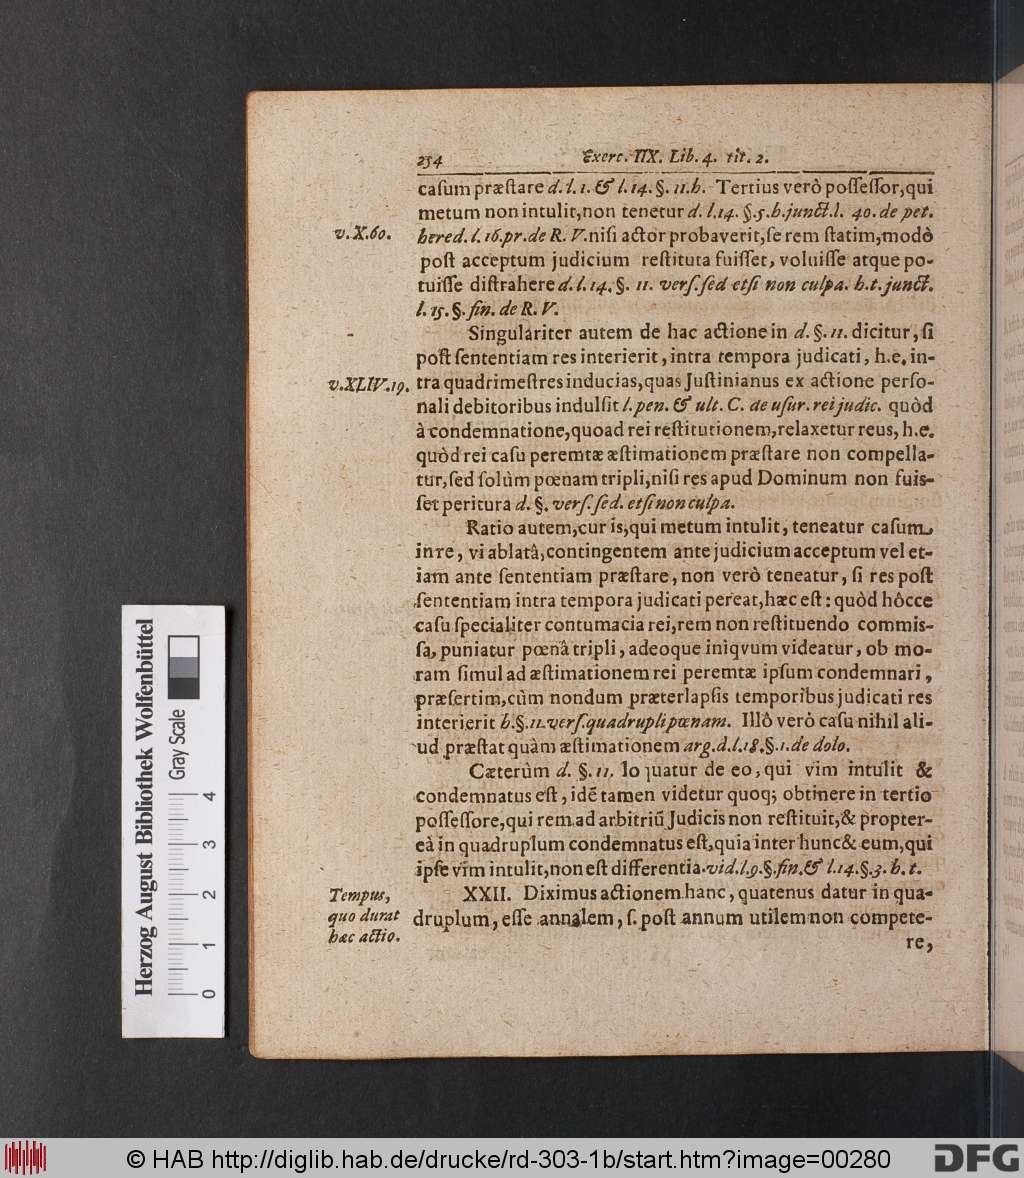 254 Exerc. IIX. Lib. 4. tit. 2.
casum præstare d. l. 1. & l. 14. §. 11. h. Tertius verò possessor, qui
metum non intulit, non tenetur d. l. 14. §. 5. h. junct. l. 40. de pet.
v. X. 60.
hered. l. 16. pr. de R. V. nisi actor probaverit, se rem statim, modò
post acceptum judicium restituta fuisset, voluisse atque po-
tuisse distrahere d. l. 14. §. 11. vers. sed etsi non culpa. h. t. junct.
l. 15. §. fin. de R. V.
Singulariter autem de hac actione in d. §. 11. dicitur, si
post sententiam res interierit, intra tempora judicati, h. e. in-
v. XLIV. 19.
tra quadrimestres inducias, quas Justinianus ex actione perso-
nali debitoribus indulsit l. pen. & ult. C. de usur. rei judic. quòd
à condemnatione, quoad rei restitutionem, relaxetur reus, h. e.
quòd rei casu peremtæ æstimationem præstare non compella-
tur, sed solùm pœnam tripli, nisi res apud Dominum non fuis-
set peritura d. §. vers. sed. etsi non culpa.
Ratio autem, cur is, qui metum intulit, teneatur casum
in re, vi ablatâ, contingentem ante judicium acceptum vel et-
iam ante sententiam præstare, non verò teneatur, si res post
sententiam intra tempora judicati pereat, hæc est: quòd hôcce
casu specialiter contumacia rei, rem non restituendo commis-
sa, puniatur pœnâ tripli, adeoque iniqvum videatur, ob mo-
ram simul ad æstimationem rei peremtæ ipsum condemnari,
præsertim, cùm nondum præterlapsis temporibus judicati res
interierit h. §. 11. vers. quadrupli pœnam. Illô verò casu nihil ali-
ud præstat quàm æstimationem arg. d. l. 18. §. 1. de dolo.
Cæterùm d. §. 11. loquatur de eo, qui vim intulit &
condemnatus est, idē tamen videtur quoq; obtinere in tertio
possessore, qui rem ad arbitriū Judicis non restituit, & propter-
eà in quadruplum condemnatus est, quia inter hunc & eum, qui
ipse vim intulit, non est differentia. vid. l. 9. §. fin. & l. 14. §. 3. h. t.
Tempus,
quo durat
hæc actio.
XXII. Diximus actionem hanc, quatenus datur in qua-
druplum, esse annalem, s. post annum utilem non compete-
re,
Herzog August Bibliothek Wolfenbüttel
Gray Scale
0 1 2 3 4
© HAB http://diglib.hab.de/drucke/rd-303-1b/start.htm?image=00280
DFG